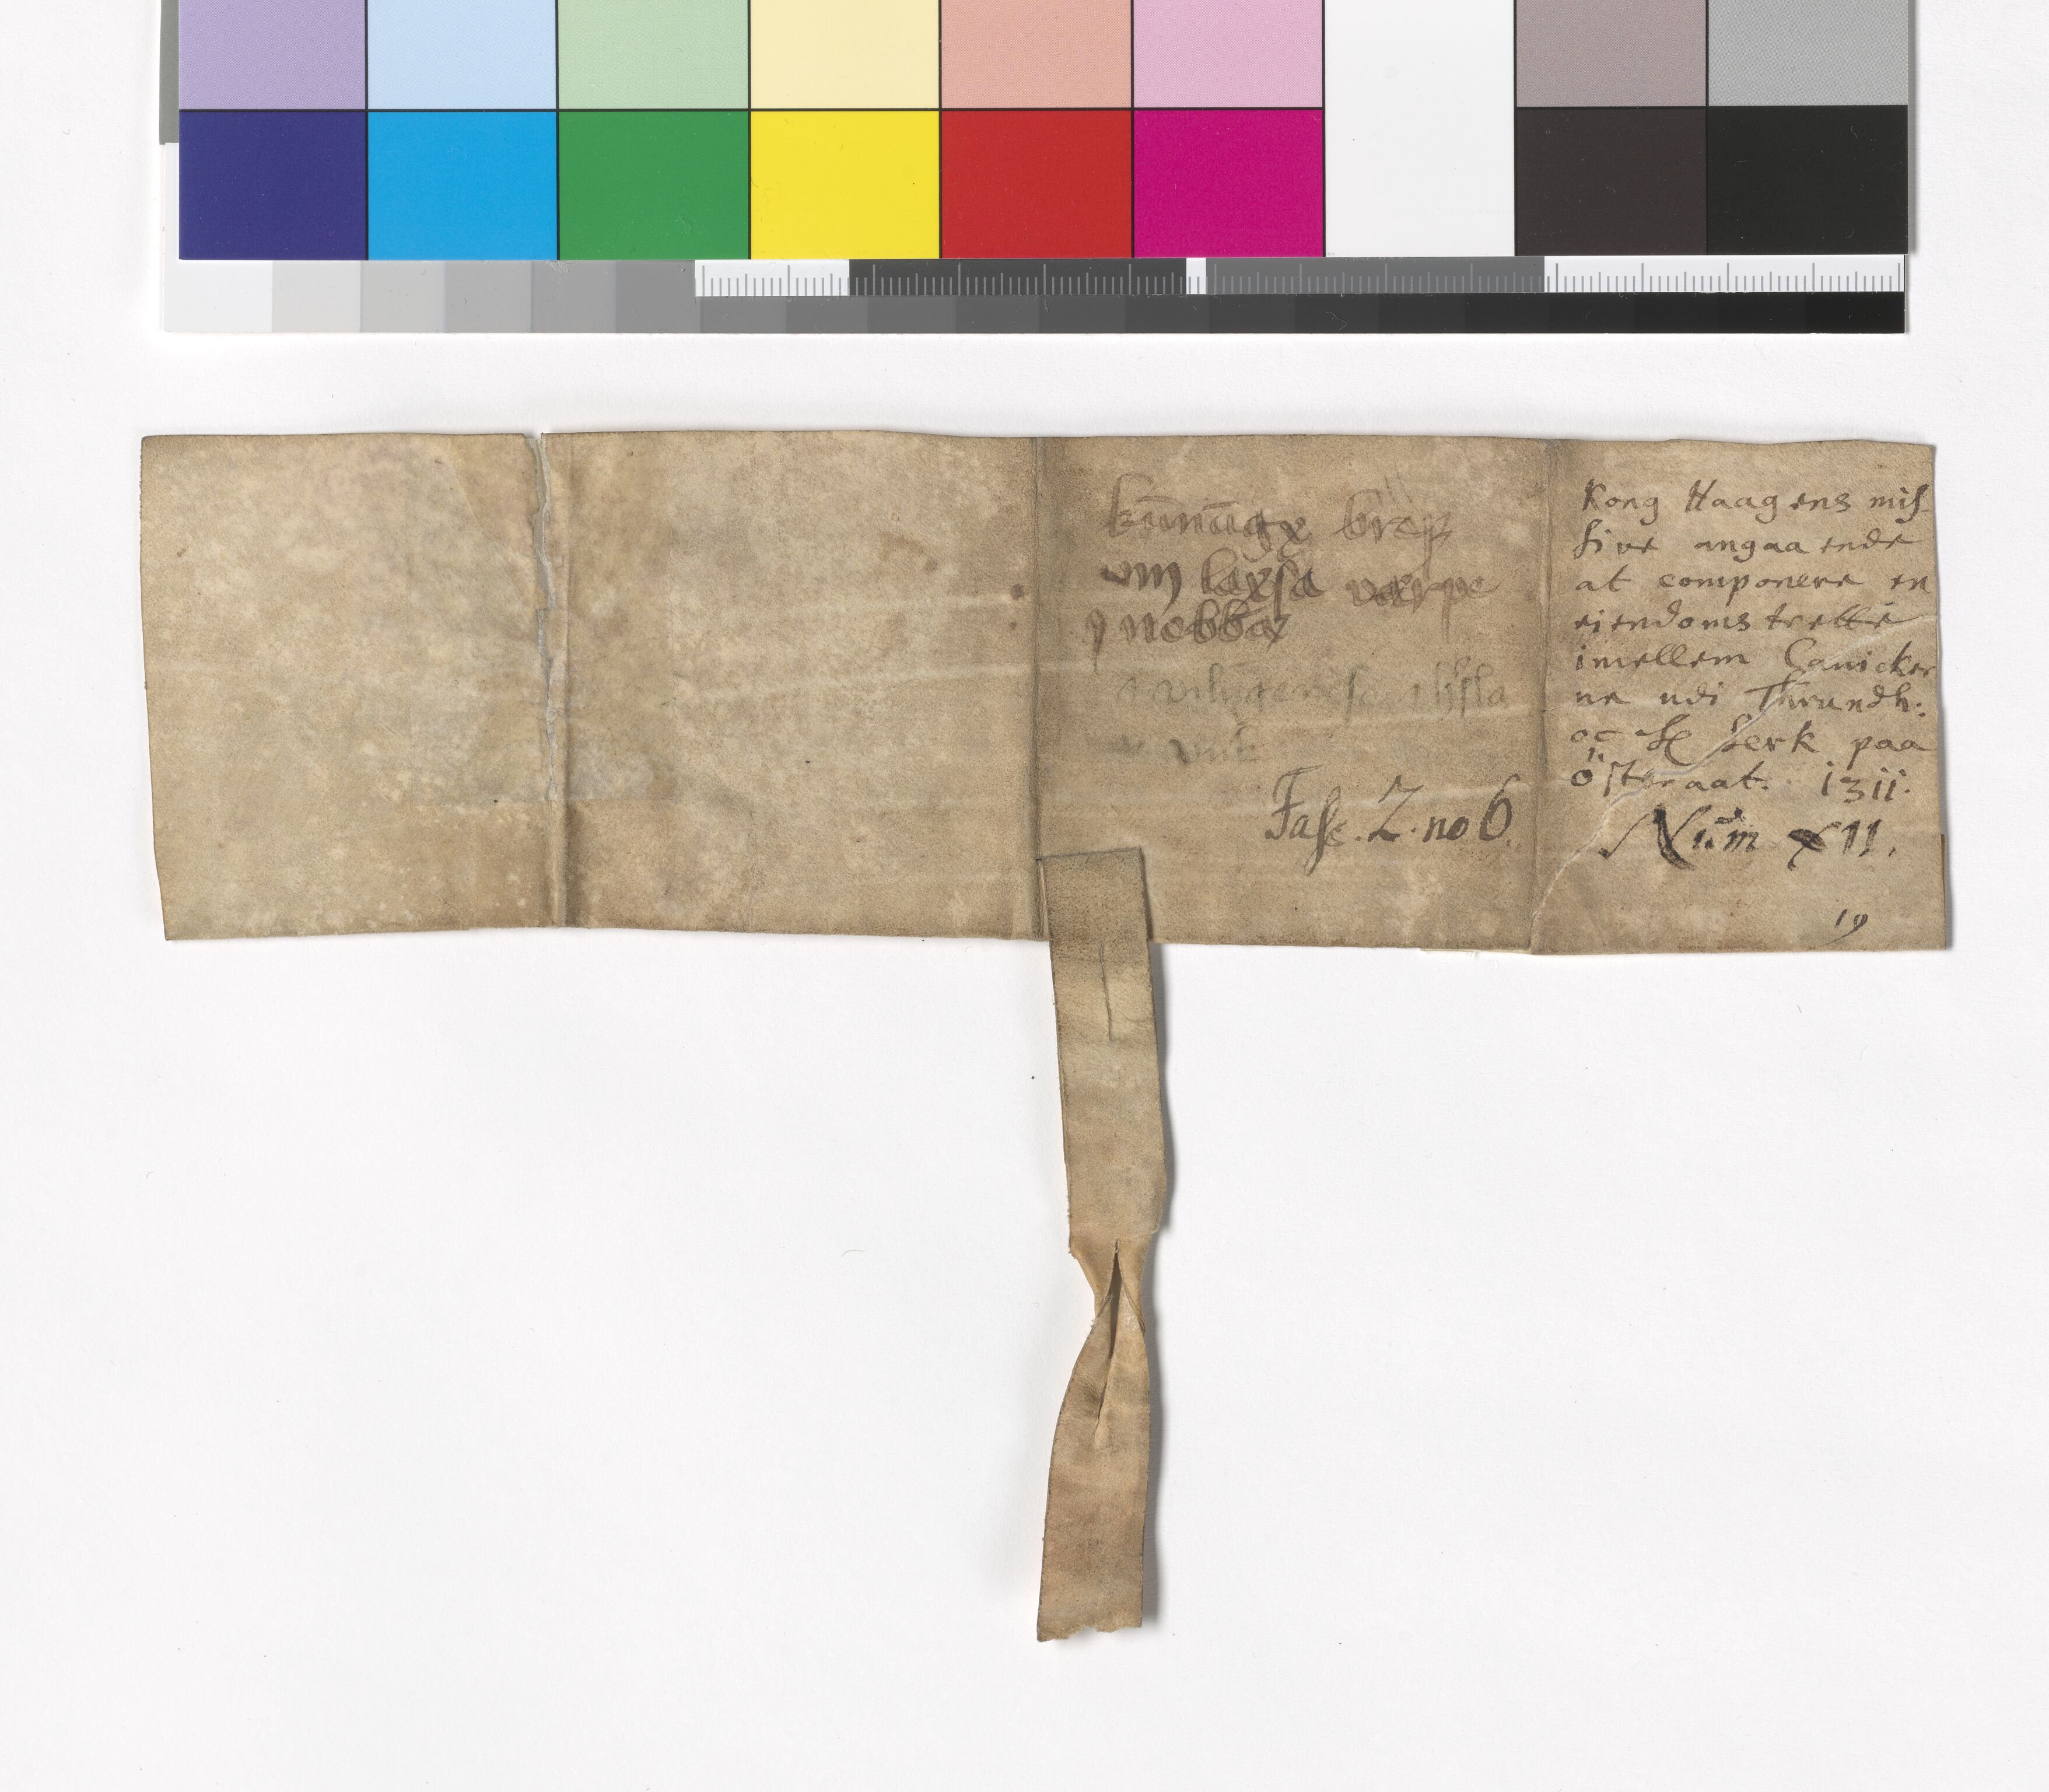 kunungx bref
um laxsa verpe
j nebba
Fasc. 2. no 6.
Kong Haagens mis-
sive angaaende
at componere en
eiendoms trette
imellem Canicker
ne udi Thrundh:
oc Hr Serk paa
Österaat. 1311.
Num XII.
19